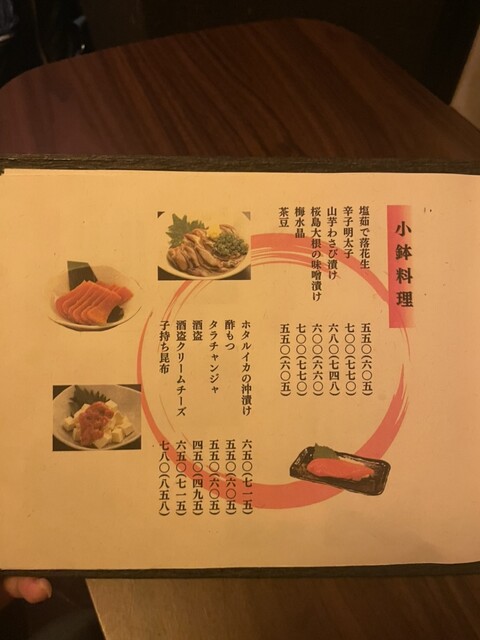 小鉢料理
塩茹で落花生 五五〇(六〇五)
辛子明太子 七〇〇(七七〇)
山芋わさび漬け 六八〇(七四八)
桜島大根の味噌漬け 六〇〇(六六〇)
梅水晶 七〇〇(七七〇)
茶豆 五五〇(六〇五)
ホタルイカの沖漬け 六五〇(七一五)
酢もつ 五五〇(六〇五)
タラチャンジャ 五五〇(六〇五)
酒盗 四五〇(四九五)
酒盗クリームチーズ 六五〇(七一五)
子持ち昆布 七八〇(八五八)